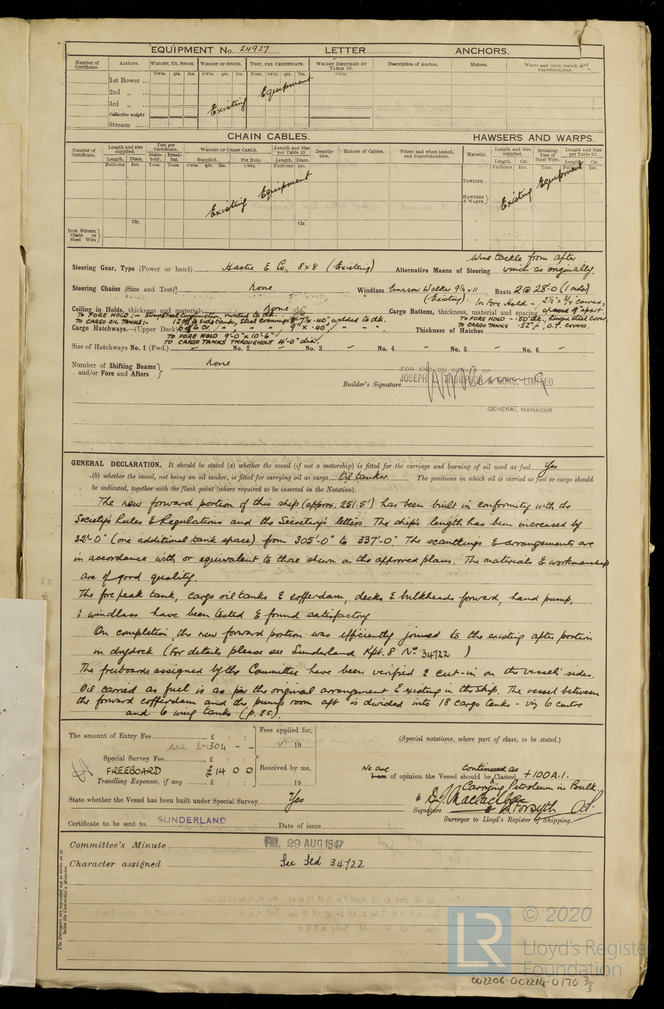 EQUIPMENT No. 24927 LETTER ANCHORS.
Number of Certificate. Anchors. Weight, Ex. Stock. Weight of Stock. Test, per Certificate. Weight Required by Table 53. Description of Anchor. Makers. Where and when tested, and Superintendent.
Cwts. qrs. lbs. Cwts. qrs. lbs. Tons. cwts. qrs. lbs. Cwts.
1st Bower ...
2nd „ ...
3rd „ ...
Existing Equipment
Collective weight
Stream ...
CHAIN CABLES. HAWSERS AND WARPS.
Number of Certificate. Length and size supplied. Test per Certificate Weight of Chain Cable. Length and Size per Table 53. Description. Makers of Cables. Where and when tested, and Superintendent. Material. Length and Size supplied. Breaking Test of Steel Wire. Length and Size per Table 53.
Length. Diam. Statutory. Breaking. Supplied. Per Rule. Length. Diam. Length. Cir. Length. Cir.
Fathoms Ins. Tons. Tons. Cwts. qrs. lbs. Fathoms Ins. Fathoms Ins. Tons. Fathoms Ins.
Existing Equipment
Towline
Hawsers & Warps
Existing Equipment
Iron Stream Chain or Steel Wire
Cir. Cir.
Wire tackle from after
Steering Gear, Type (Power or hand) Hastie & Co, 8 x 8 (Existing) Alternative Means of Steering winch as originally.
Steering Chains (Size and Test) None Windlass Emerson Walker 9½ x 11 Boats 2 @ 28'-0 (1 motor)
(Existing). In Fore Hold -
Ceiling in Holds, thickness and material None Cargo Battens, thickness, material and spacing spaced 9" apart.
TO FORE HOLD :-
TO CARGO OIL TANKS:-
Cargo Hatchways.—(Upper Deck) Thickness of Hatches
TO FORE HOLD 9'-0" x 10'-6"
TO CARGO TANKS THROUGHOUT 4'-0" dia.
Size of Hatchways No. 1 (Fwd.) No. 2 No. 3 No. 4 No. 5 No. 6
Number of Shifting Beams and/or Fore and Afters None
FOR AND ON BEHALF OF
Builder's Signature JOSEPH L. THOMPSON & SONS. LIMITED
GENERAL MANAGER
GENERAL DECLARATION. It should be stated (a) whether the vessel (if not a motorship) is fitted for the carriage and burning of oil used as fuel Yes
(b) whether the vessel, not being an oil tanker, is fitted for carrying oil as cargo Oil tanker The positions in which oil is carried as fuel or cargo should
be indicated, together with the flash point (where required to be inserted in the Notation).
The new forward portion of this ship (approx. 251.5') has been built in conformity with the
Society's Rules & Regulations and the Secretary's letters. The ship's length has been increased by
32'-0" (one additional tank space) from 305'-0" to 337'-0". The scantlings & arrangements are
in accordance with or equivalent to those shewn on the approved plans. The materials & workmanship
are of good quality.
The fore peak tank, cargo oil tanks & cofferdam, decks & bulkheads forward, hand pump,
& windlass have been tested & found satisfactory
On completion, the new forward portion was efficiently joined to the existing after portion
in drydock (For details please see Sunderland Rpt. 8 No 34122 )
The freeboards assigned by the Committee have been verified & cut-in on the vessel's sides.
Oil carried as fuel is as per the original arrangement & existing in the ship. The vessel between
the forward cofferdam and the pump room aft is divided into 18 cargo tanks - viz 6 centre
and 6 wing tanks (p.&s.).
The amount of Entry Fee £ : : Fees applied for,
19
(Special notations, where part of class, to be stated.)
Special Survey Fee £ : :
FREEBOARD £14 0 0 Received by me,
Travelling Expenses, if any £ : : 19
We are continued as
I am of opinion the Vessel should be Classed +100A.1.
Carrying Petroleum in Bulk
State whether the Vessel has been built under Special Survey Yes
Signature
Surveyor to Lloyd's Register of Shipping.
Certificate to be sent to SUNDERLAND Date of issue
Committee's Minute FRI. 29 AUG 1947
Character assigned See Sld 34122
The Surveyors are requested not to write on or below the Committee's Minutes.
LR
© 2020
Lloyd's Register
Foundation
002206-002214-0170 3/3